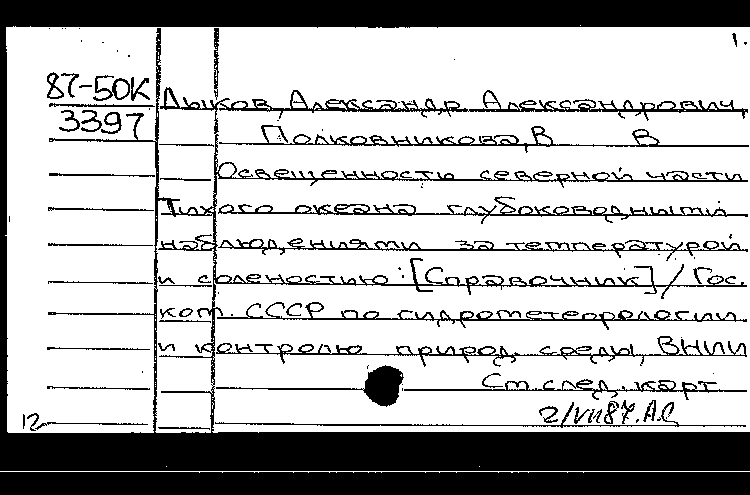 1.
87-50К Лыков, Александр Александрович,
3397 Полковникова, В В
Освещенность северной части
Тихого океана глубоководными
наблюдениями за температурой
и соленостью: [Справочник] / Гос.
ком. СССР по гидрометеорологии
и контролю природ. среды, ВНИИ
См. след. карт
2/VII87. АС
12